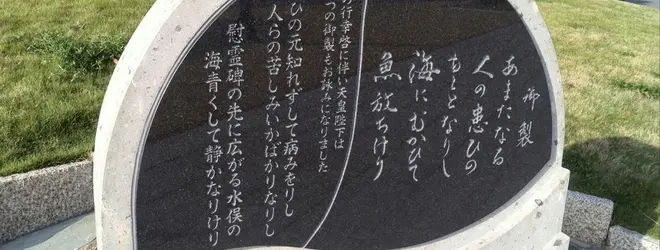 御製
あまたなる
人の患ひの
もととなりし
海にむかひて
魚放ちけり
の行幸啓に伴い天皇陛下は
つの御製もお詠みになりました
ひの元知れずして病みをりし
人らの苦しみいかばかりなりし
慰霊碑の先に広がる水俣の
海青くして静かなりけり